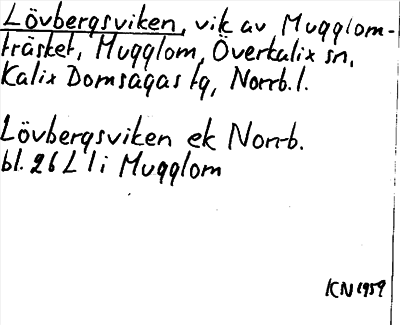 Lövbergsviken, vik av Mugglom-
träsket, Mugglom, Överkalix sn,
Kalix Domsagas tg, Norrb. l.
Lövbergsviken ek Norrb.
bl. 26 L 1 i Mugglom
KN 1959